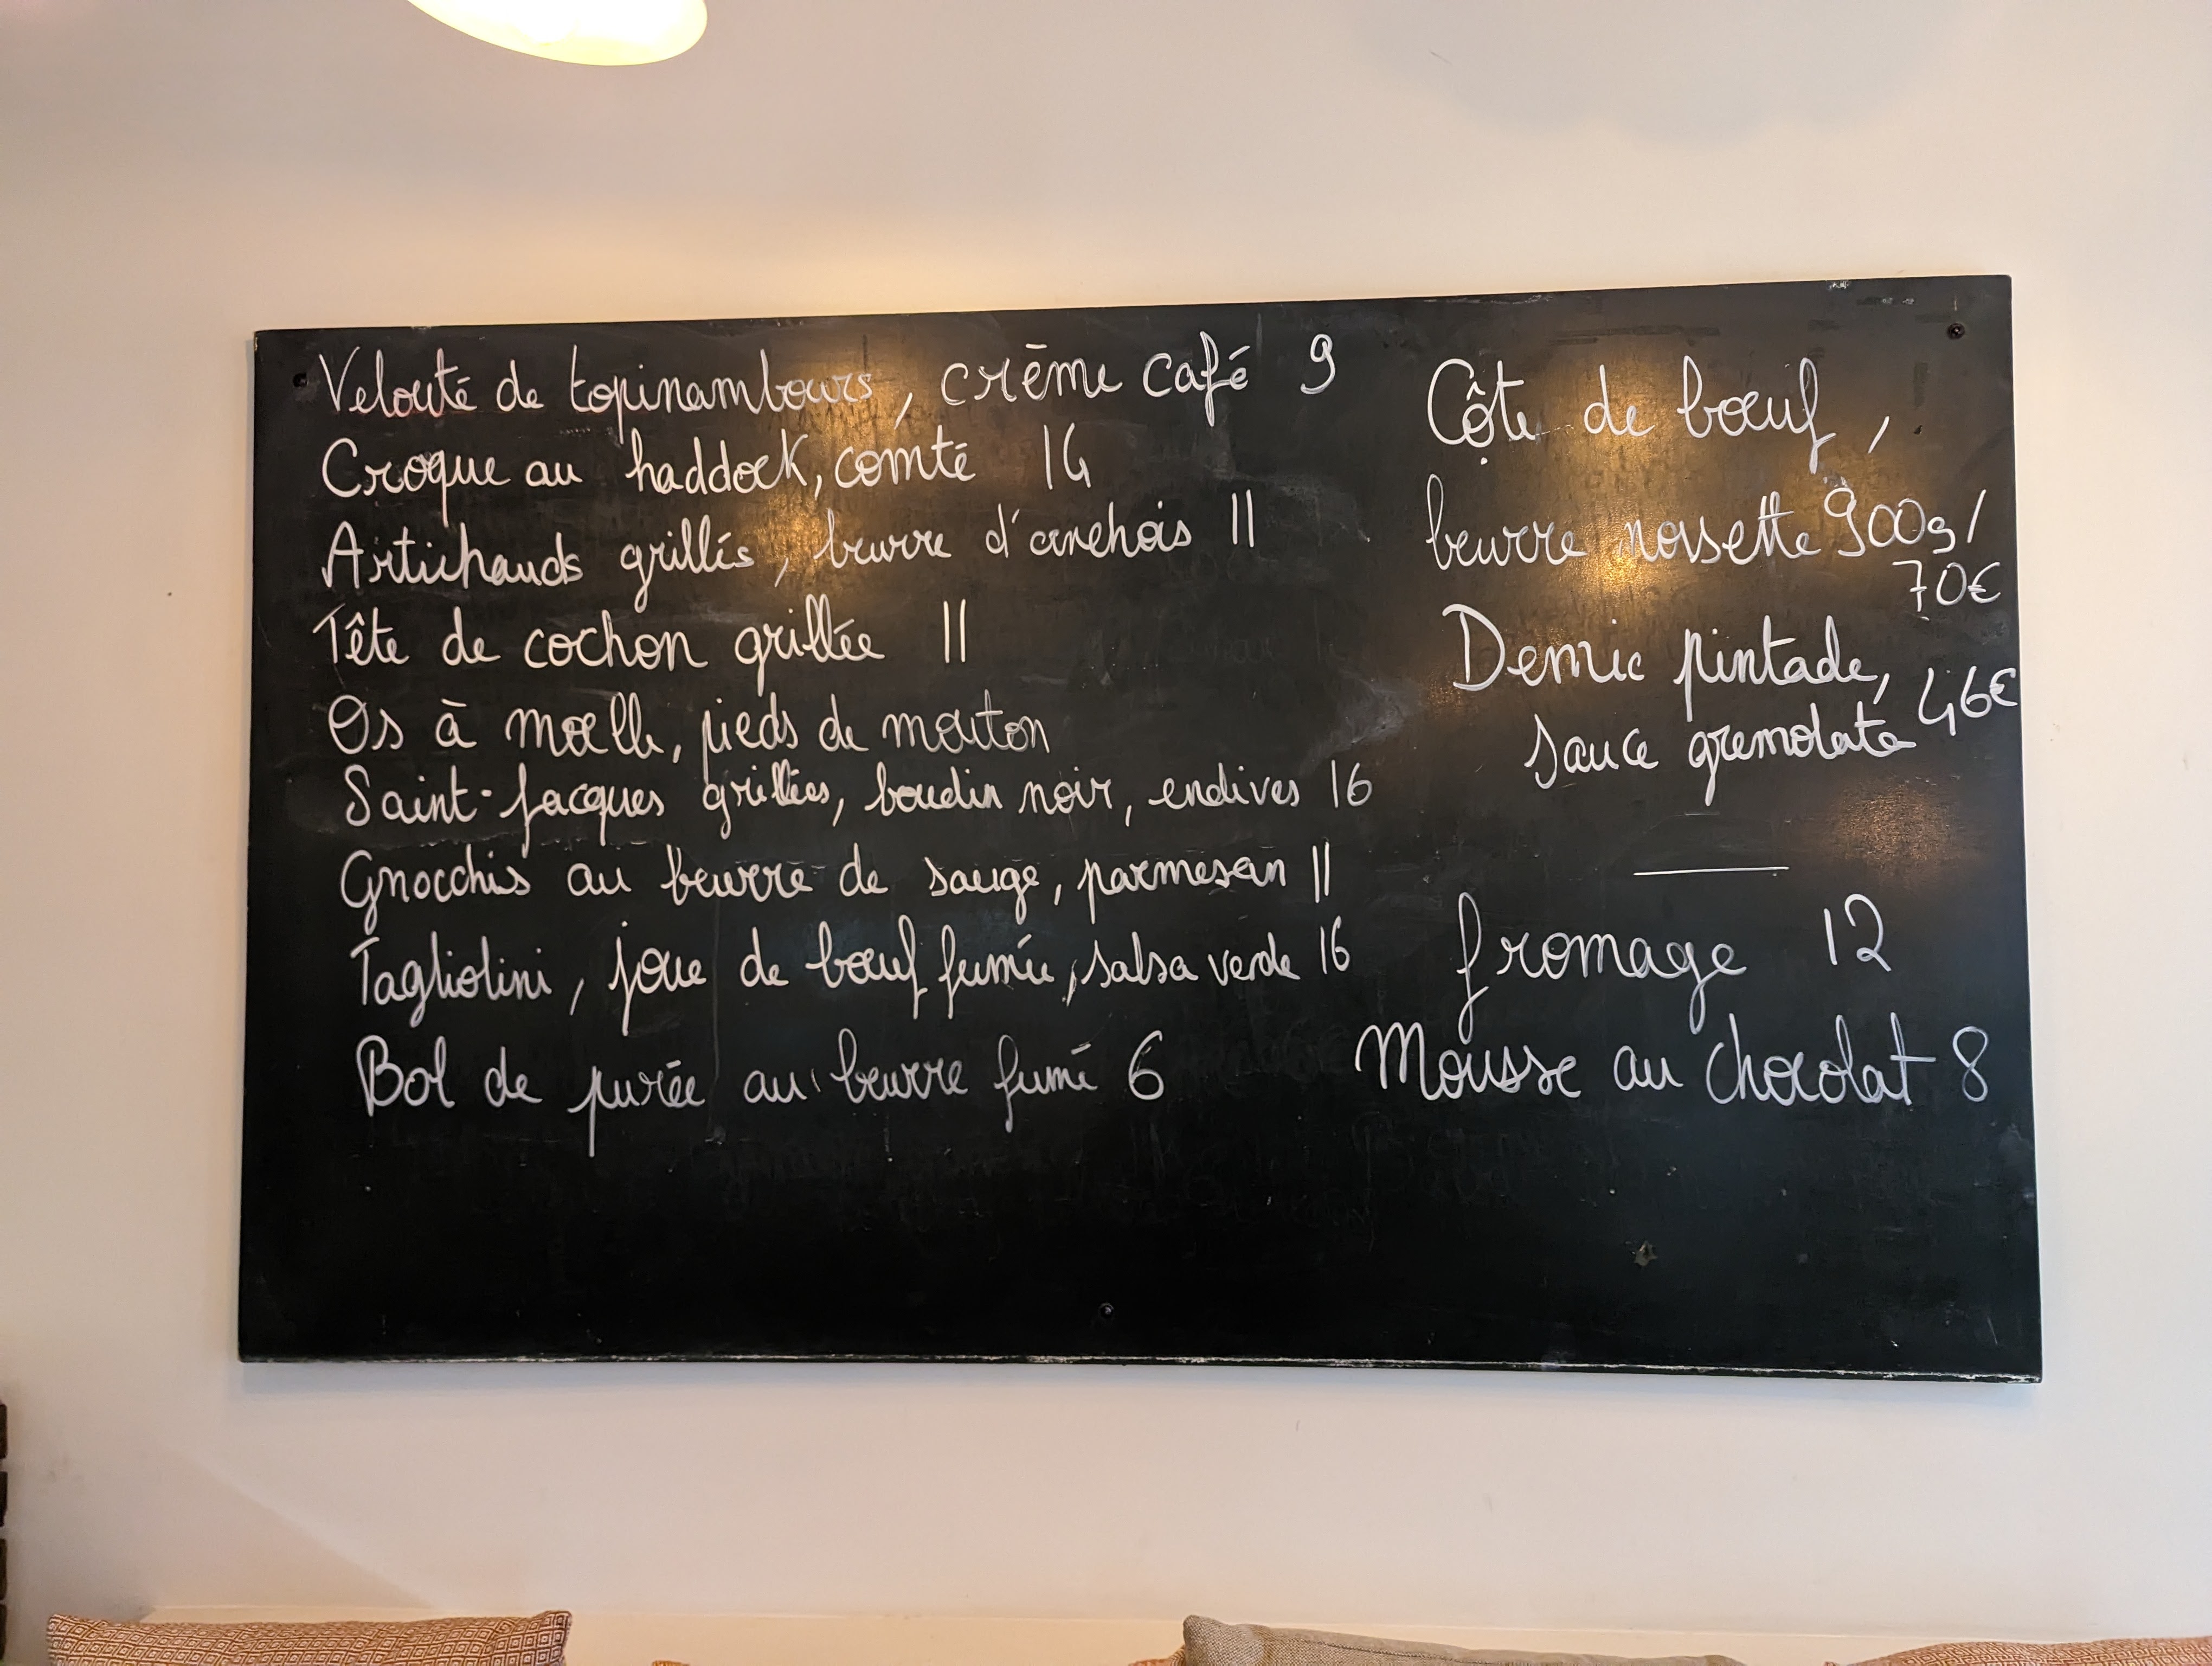 Velouté de topinambours, crème café 9
Croque au haddock, comté 14
Artichauds grillés, beurre d'anchois 11
Tête de cochon grillée 11
Os à moelle, pieds de mouton
Saint-Jacques grillées, boudin noir, endives 16
Gnocchis au beurre de sauge, parmesan 11
Tagliolini, joue de bœuf fumée, salsa verde 16
Bol de purée au beurre fumé 6
Côte de bœuf,
beurre noisette 900g/
70€
Demie pintade,
sauce gremolata 46€
fromage 12
Mousse au chocolat 8